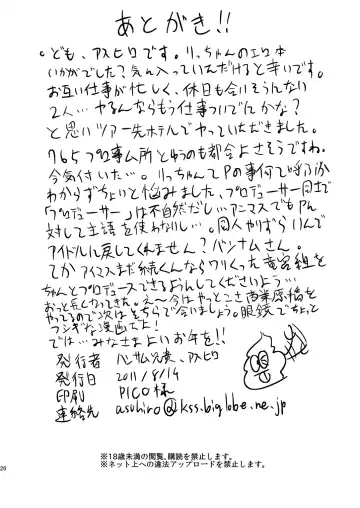 あとがき!!
。ども、アスヒロです。りっちゃんのエロ本
いかがでした?気に入っていただけると幸いです。
お互い仕事が忙しく、休日も合いそうんない
2人…ヤるんならもう仕事ついでにかな?
と思いツアー先ホテルでやっていただきました。
765プロ事ム所とゆうのも都合よさそうですね。
今気付いた…。りっちゃんてPの事何て呼ぶか
わからずちょいと悩みました、プロデューサー同士で
「プロデューサー」は不自然だし…アニマスでもPに
対して主語を使わないし…。同人やりずらいんで
アイドルに戻してくれません?バンナムさん。
てかアイマスまだ続くんならワリくった竜宮組を
ちゃんとプロデュースできるようにしてくださいよう…
おっと長くなってきた。え〜今はやっとこさ西業原稿を
やってるので次はそちらで会いましょう。眼鏡でちょっと
フシギな漫画だよ!
では…みなさまよいお年を!!
発行者 ハンサム兄弟、アスヒロ
発行日 2011/8/14
印刷 PICO様
連絡先 asuhiro@kss.biglobe.ne.jp
※18歳未満の閲覧、購読を禁止します。
※ネット上への違法アップロードを禁止します。
26